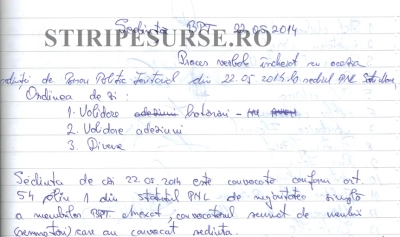 Ședința BPT 22.05.2014
STIRIPESURSE.RO
Proces verbal încheiat cu ocazia
ședinței de Birou Politic Teritorial din 22.05.2014 la sediul PNL
Ordinea de zi:
1. Validare adeziuni hotărâri -
2. Validare adeziuni
3. Diverse
Ședința de azi 22.05.2014 este convocată conform art.
54 alin 1 din statutul PNL de majoritatea simplă
a membrilor BPT anexat, convocatorul semnat de membrii
(semnatari) care au convocat ședința.